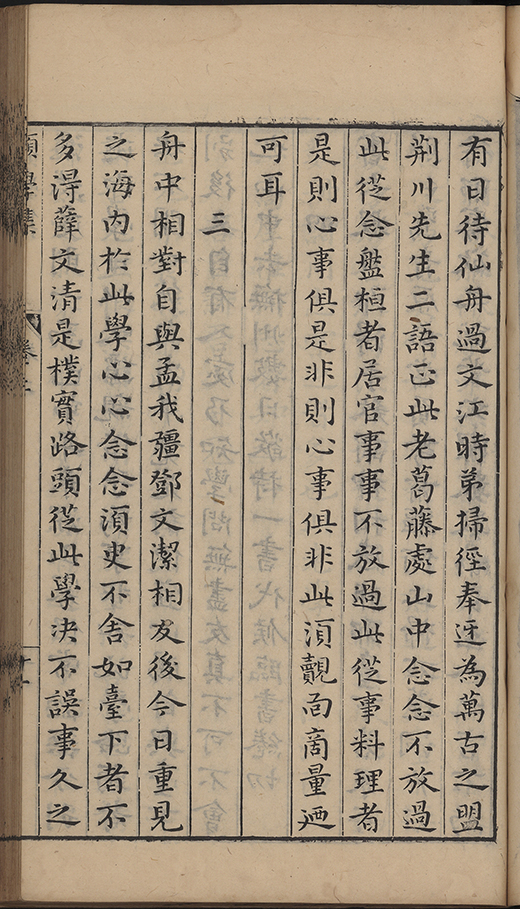 有日待仙舟過文江時弟掃徑奉迓為萬古之盟
荆川先生二語正此老葛藤處山中念念不放過
此從念盤桓者居官事事不放過此從事料理者
是則心事俱是非則心事俱非此須覿面商量廼
可耳
三
舟中相對自與孟我疆鄧文潔相友後今日重見
之海内於此學心心念念須臾不舍如臺下者不
多淂薛文清是樸實路頭從此學决不誤事久之
願學集
卷之
十一